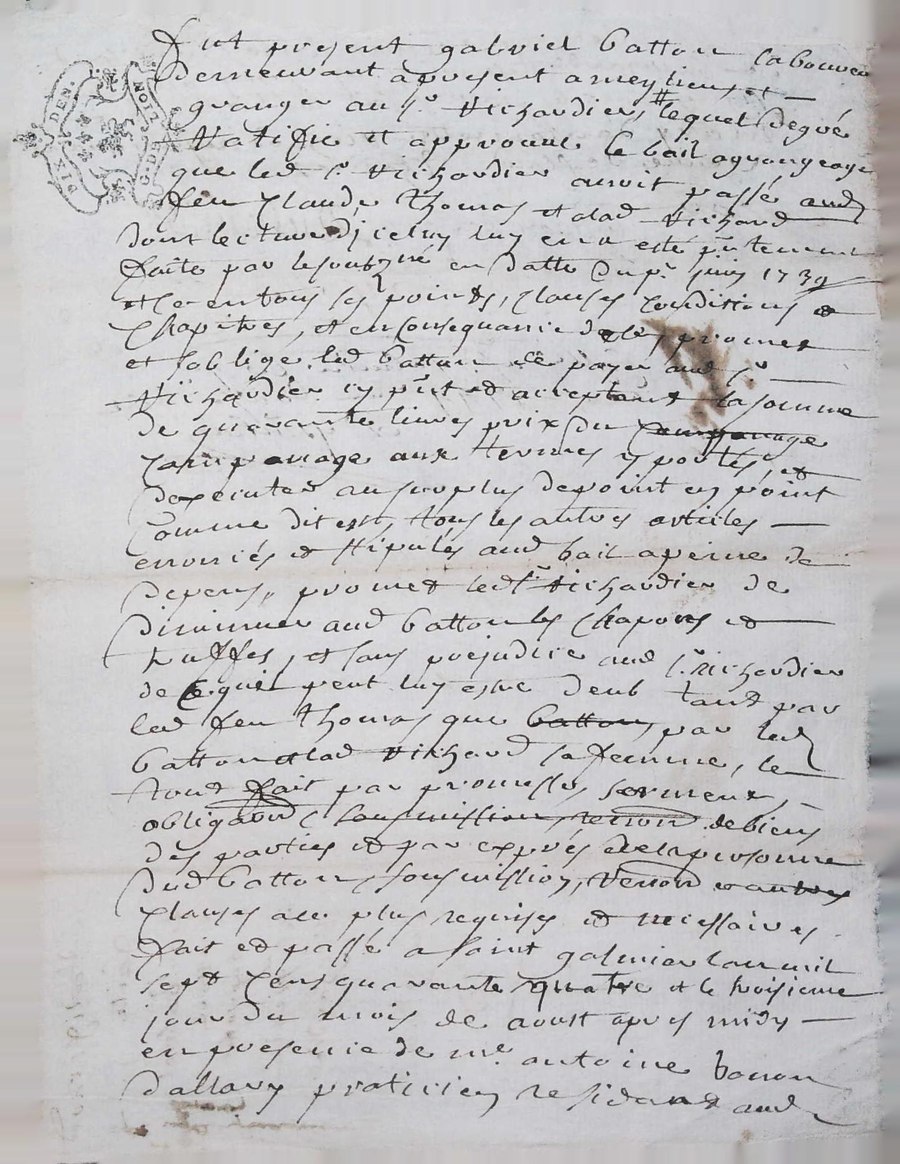 DIX DEN. G. D. LION
fut present gabriel batton laboureur
demeurant apresent a meylieux et
granger au sr Richardier, lequel degré
Ratifie et approuve le bail agrangeage
que led sr Richardier auroit passé aud
feu Claude Thomas et a lad Richard
dont lecture diceluy luy en a esté pntement
faite par lesoubzné en datte du pr juin 1739
et ce en tous ses points, Clauses Conditions et
Chapitres, et en Consequance de ce promet
et soblige led batton de payer aud sr
Richardier cy pnt et acceptant la somme
de quarante livres prix du
campanage aux termes y portés, et
dexecuter au surplus de point en point
Comme dit est, tous les autres articles
enonces et stipulés aud bail apeine de
depens, promet led sr Richardier de
diminuer aud batton les Chapons et
truffes, et sans prejudice aud sr Richardier
de ce qui peut luy estre deub tant par
led feu Thomas que batton, par led
batton et lad Richard sa femme, le
tout fait par promesse, serment,
obligaõn soumission, renon de biens
des parties et par exprés de la personne
dud batton, soumission, Renon et autres
clauses a ce plus requises et necessaires
fait et passé a saint galmier lan mil
sept Cens quarante quatre et le troisieme
jour du mois de aoust apres midy
en presence de me antoine
praticien residant aud